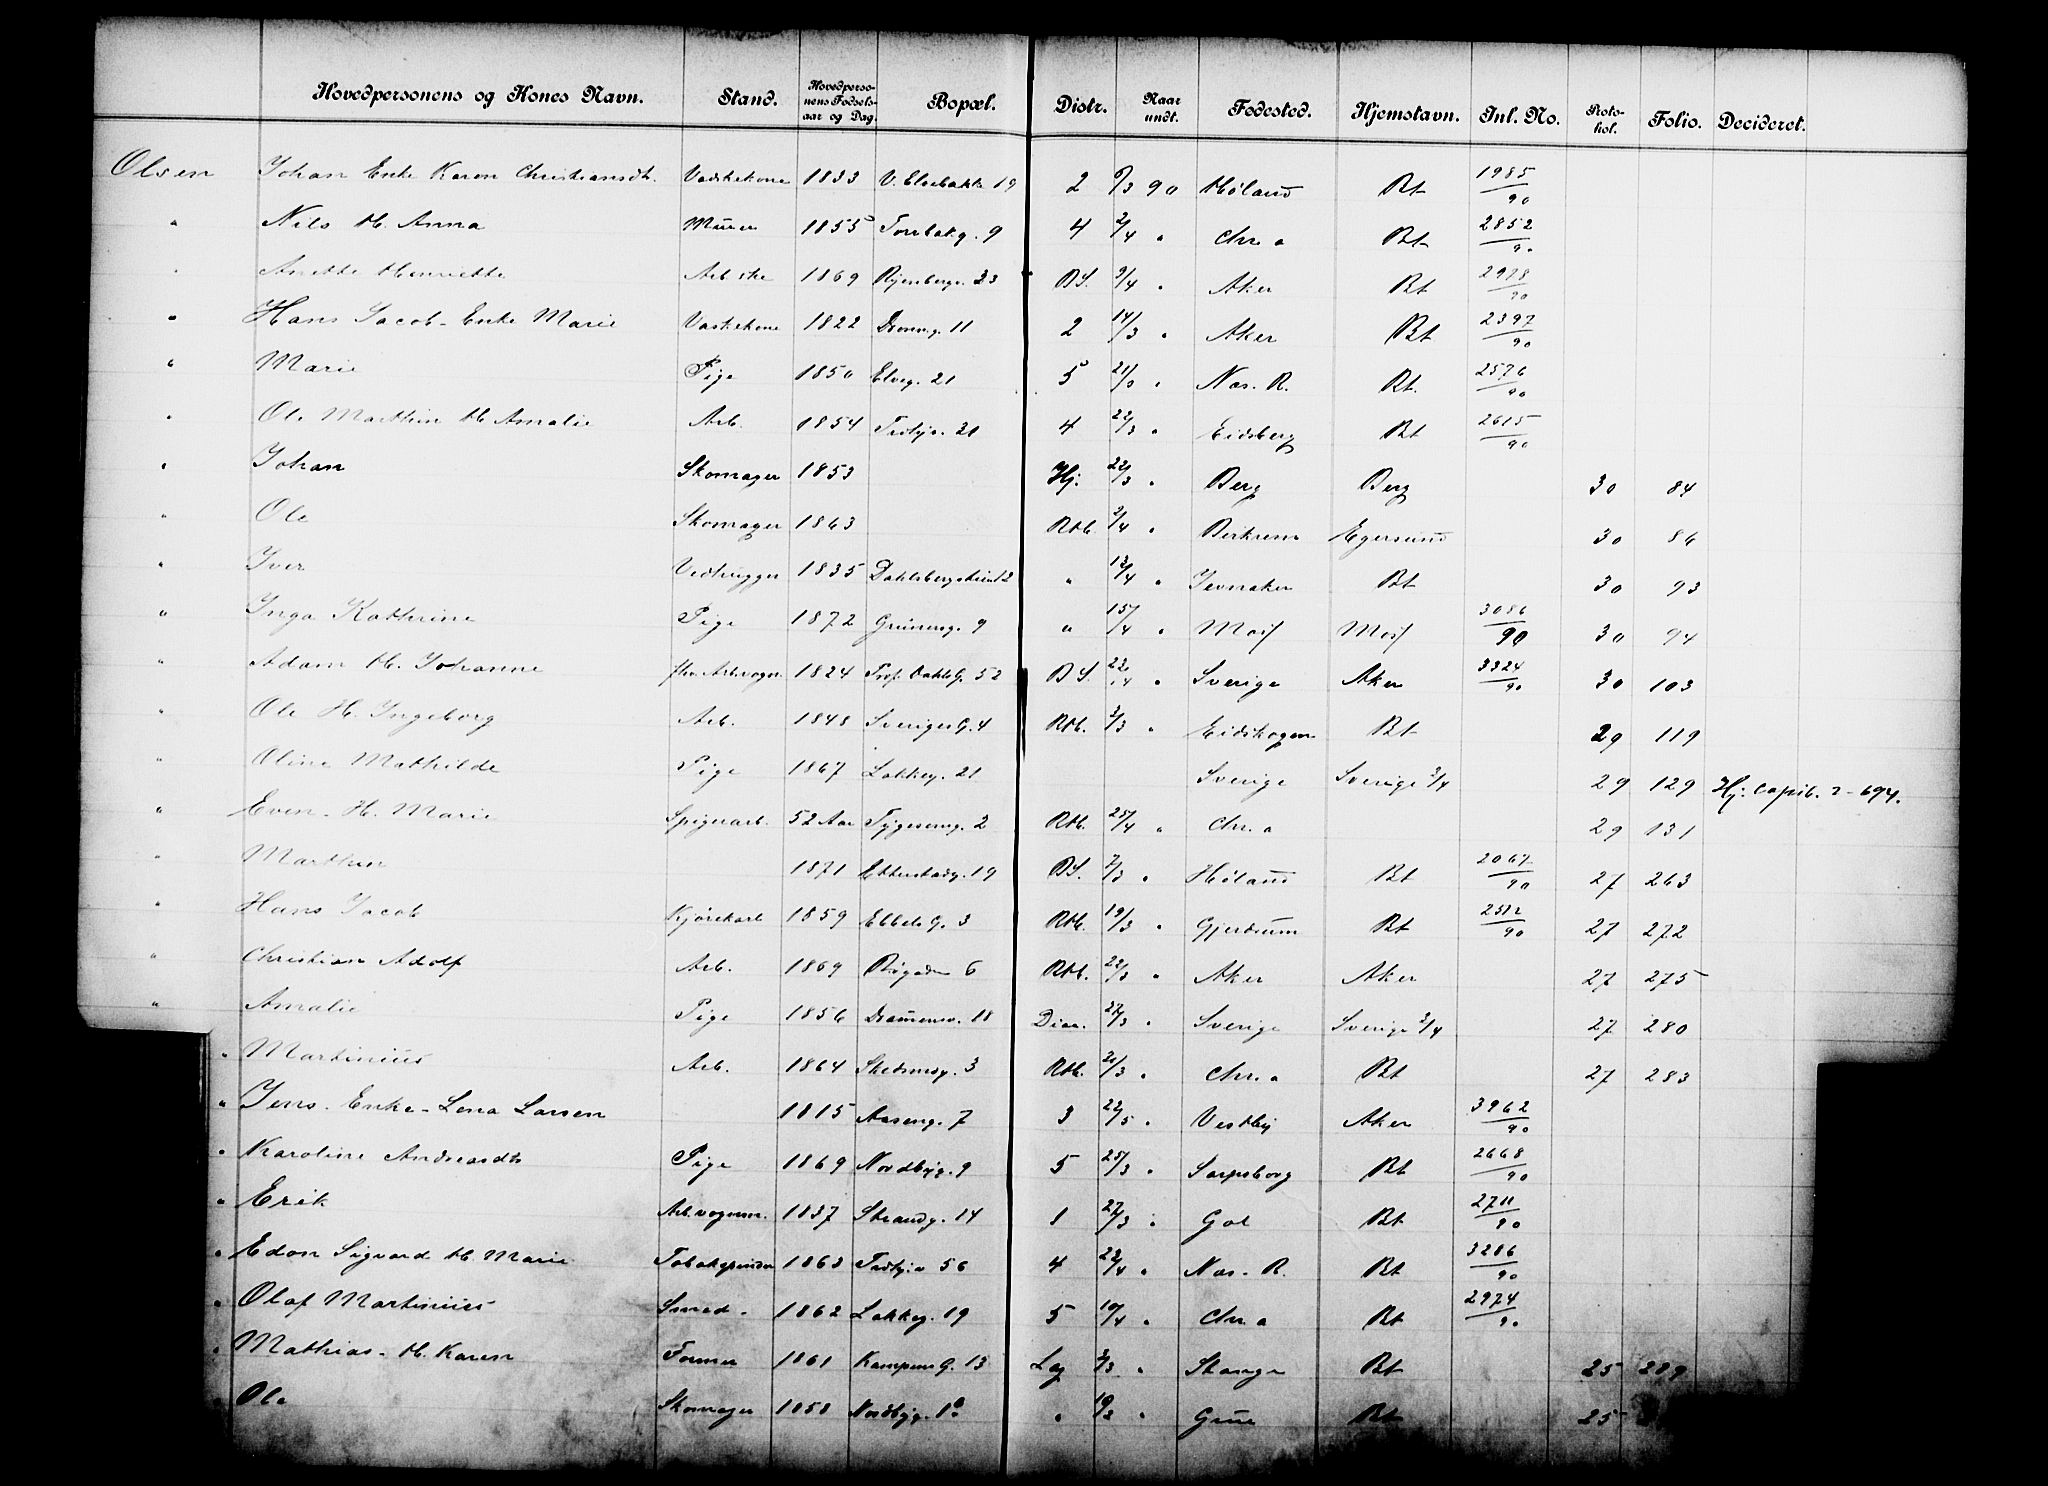 Hovedpersonens og Kones Navn. Stand. Hovedpersonens Fødselsaar og Dag. Bopæl. Distr. Naar undt. Fødested. Hjemstavn. Inl. No. Protokol. Folio. Decideret.
Olsen Johan Enke Karen Christiansdt. Vaskekone 1833 V. Elvebakke 19 2 9/3 90 Høland Bt 1985/90
" Nils H. Anna Murer 1855 Torvbakg. 9 4 2/4 " Chr.a Bt 2852/90
" Anette Henriette Arbske 1869 Ryenbergv. 23 BS. 9/4 " Aker Bt 2978/90
" Hans Jacob - Enke Marie Vaskekone 1822 Dronng. 11 2 14/3 " Aker Bt 2397/90
" Marie Pige 1850 Elveg. 21 5 21/3 " Nes. R. Bt. 2576/90
" Ole Marthin H. Amalie Arb. 1854 Trotjv. 21 4 22/3 " Eidsberg Bt 2615/90
" Johan Skomager 1853 Hj. 22/3 " Berg Berg 30 84
" Ole Skomager 1863 Rtb. 2/4 " Birkrem Egersund 30 86
" Iver Vedhugger 1835 Dahlsbergstien 12 " 12/4 " Jevnaker Bt 30 93
" Inga Kathrine Pige 1872 Grünersg. 9 " 15/4 " Moss Moss 3086/90 30 94
" Adam H. Johanne fhv. Arb.vogn. 1824 Prof. Dahls G. 52 BS. 22/4 " Sverige Aker 3324/90 30 103
" Ole H. Ingeborg Arb. 1848 Sveriges G. 4 Rtb. 3/3 " Eidskogen Bt 29 119
" Oline Mathilde Pige 1867 Lakkeg. 21 Sverige Sverige 3/4 29 129 Hj. Copib. 2-694.
" Even - H. Marie Spigerarb. 52 Aar Tygesensg. 2 Rtb. 25/4 " Chr.a 29 131
" Marthin 1871 Etterstadg. 19 BS. 7/3 " Høland Bt 2067/90 27 263
" Hans Jacob Kjørekarl 1859 Ebbels G. 3 Rtb. 19/3 " Gjerdrum Bt 2512/90 27 272
" Christian Adolf Arb. 1869 Bøgaden 6 Rtb. 22/3 " Aker Aker 27 275
" Amalie Pige 1856 Drammensv. 18 Diac. 22/3 " Sverige Sverige 3/4 27 280
" Martinius Arb. 1864 Skedsmog. 3 Rtb. 21/3 " Chr.a Bt 27 283
" Jens - Enke - Lena Larsen 1815 Aaseng. 7 3 22/5 " Vestby Aker 3962/90
" Karoline Andreasdt Pige 1869 Nordbyg. 9 5 25/3 " Sarpsborg Bt 2668/90
" Erik Arb.vognm. 1837 Strandg. 14 1 27/3 " Gol Bt 2711/90
" Edon Sigvard H. Marie Tobakspinder 1863 Trotjv 56 4 22/4 " Nes. R. Bt 3286/90
" Olaf Martinius Smed - 1862 Lakkeg. 19 5 10/4 " Chr.a Bt 2974/90
" Mathias - H. Karen Former 1861 Kampens G. 13 Lag 3/3 " Stange Bt 25 289
" Ole Skomager 1858 Nordbyg. 18 " 10/3 " Grue Bt 25